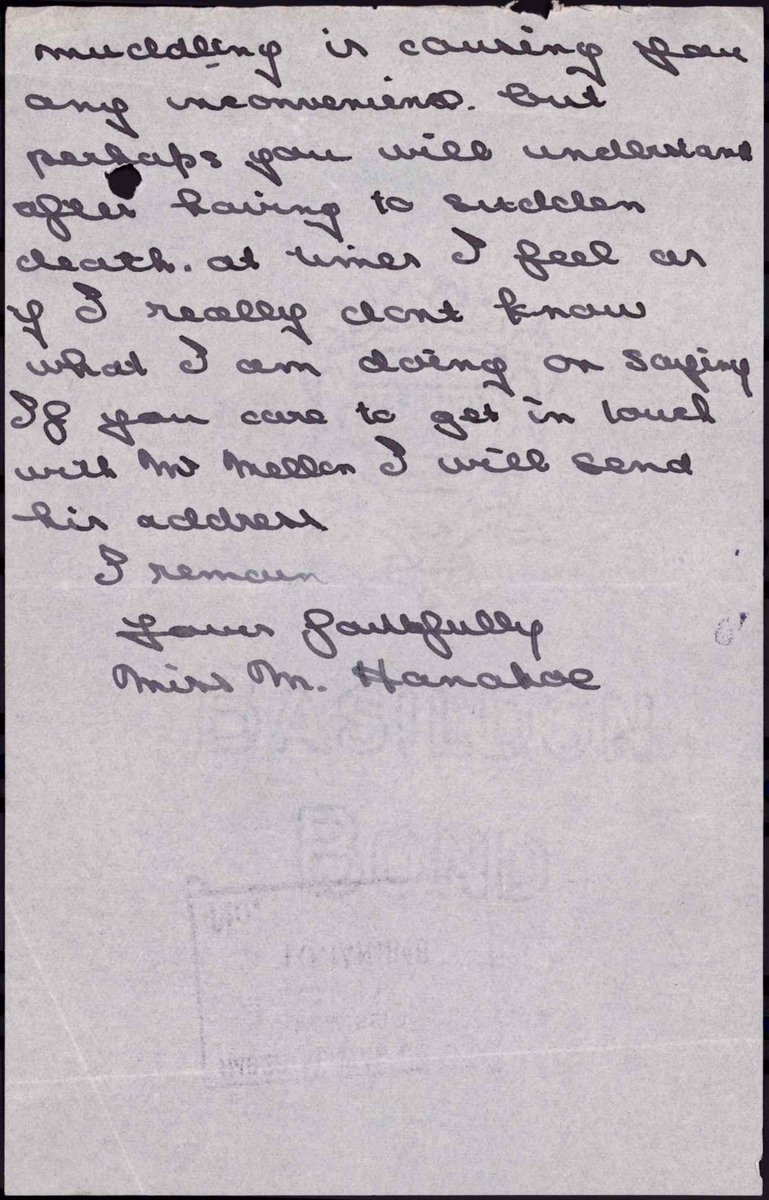 muddling is causing you
any inconvenienc. but
perhaps you will understand
after having to sudden
death. at times I feel as
if I really dont know
what I am doing or saying
If you care to get in touch
with Mr Mellon I will send
his address
I remain
Yours faithfully
Miss M. Hanahoe
BASILDON
BOND